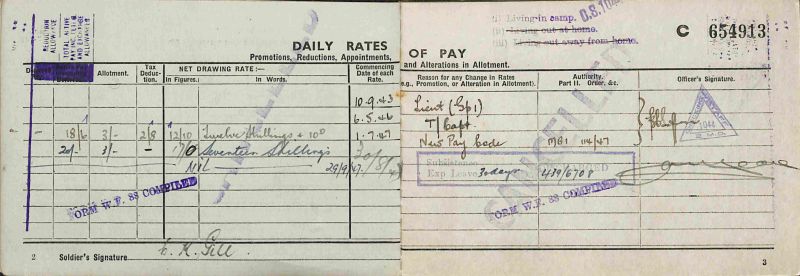 REDUCTION ALLOWANCE
TOTAL ACTIVE PAY INC. TEF. & AND EXCHANGE ALLOWANCES
DAILY RATES
Promotions, Reductions, Appointments,
Allotment.
Tax Deduction.
NET DRAWING RATE:—
In Figures.
In Words.
Commencing Date of each Rate.
10.9.43
6.5.46
18/6 3/- 2/8 12/10 Twelve Shillings & 10D 1.7.47
20/- 3/- — 17/0 Seventeen Shillings 30/8/47
NIL 29/9/47
FORM W.F. 88 COMPILED
2 Soldier's Signature
(i) Living in camp.
(ii) Living out at home.
(iii) Living out away from home.
C 654913
OF PAY
and Alterations in Allotment.
Reason for any Change in Rates
(e.g., Promotion, or Alteration in Allotment).
Authority.
Part II. Order, &c.
Officer's Signature.
Lieut (Gp 1)
T/Capt
New Pay Code MBI 114/47
Subsistence
Exp Leave 30 days 439/6708
FORM W.F. 88 COMPILED
CANCELLED
3